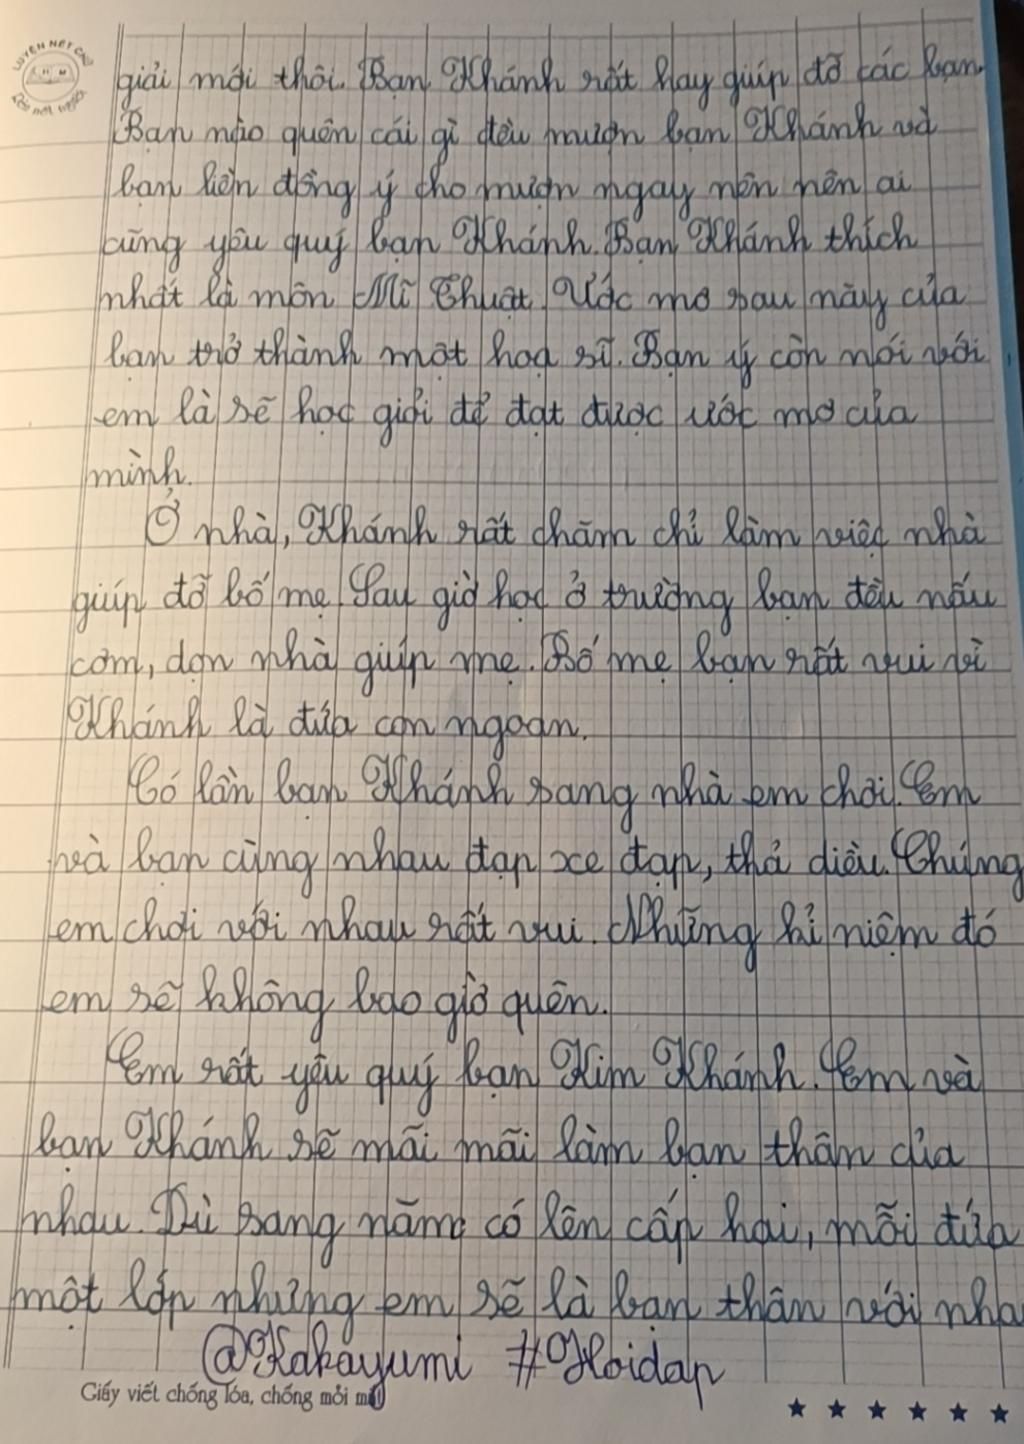 LUYỆN NÉT CHỮ
RÈN NẾT NGƯỜI
giải mới thôi. Bạn Khánh rất hay giúp đỡ các bạn.
Bạn nào quên cái gì đều mượn bạn Khánh và
bạn liền đồng ý cho mượn ngay nên nên ai
cũng yêu quý bạn Khánh. Bạn Khánh thích
nhất là môn Mĩ Thuật. Ước mơ sau này của
bạn trở thành một hoạ sĩ. Bạn ý còn nói với
em là sẽ học giỏi để đạt được ước mơ của
mình.
Ở nhà, Khánh rất chăm chỉ làm việc nhà
giúp đỡ bố mẹ. Sau giờ học ở trường bạn đều nấu
cơm, dọn nhà giúp mẹ. Bố mẹ bạn rất vui vì
Khánh là đứa con ngoan.
Có lần bạn Khánh sang nhà em chơi. Em
và bạn cùng nhau đạp xe đạp, thả diều. Chúng
em chơi với nhau rất vui. Những kỉ niệm đó
em sẽ không bao giờ quên.
Em rất yêu quý bạn Kim Khánh. Em và
bạn Khánh sẽ mãi mãi làm bạn thân của
nhau. Dù sang năm có lên cấp hai, mỗi đứa
một lớp nhưng em sẽ là bạn thân với nha
@Kakayumi #Hoidap
Giấy viết chống lóa, chống mỏi mắt